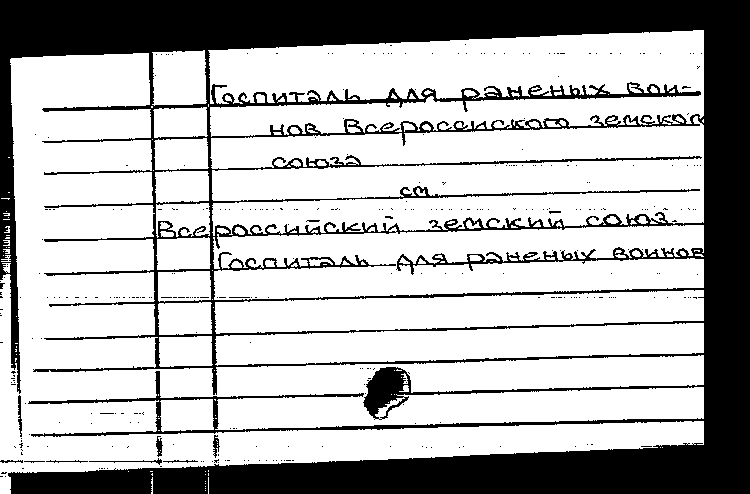 Госпиталь для раненых вои-
нов Всероссийского земского
союза
см.
Всероссийский земский союз.
Госпиталь для раненых воинов